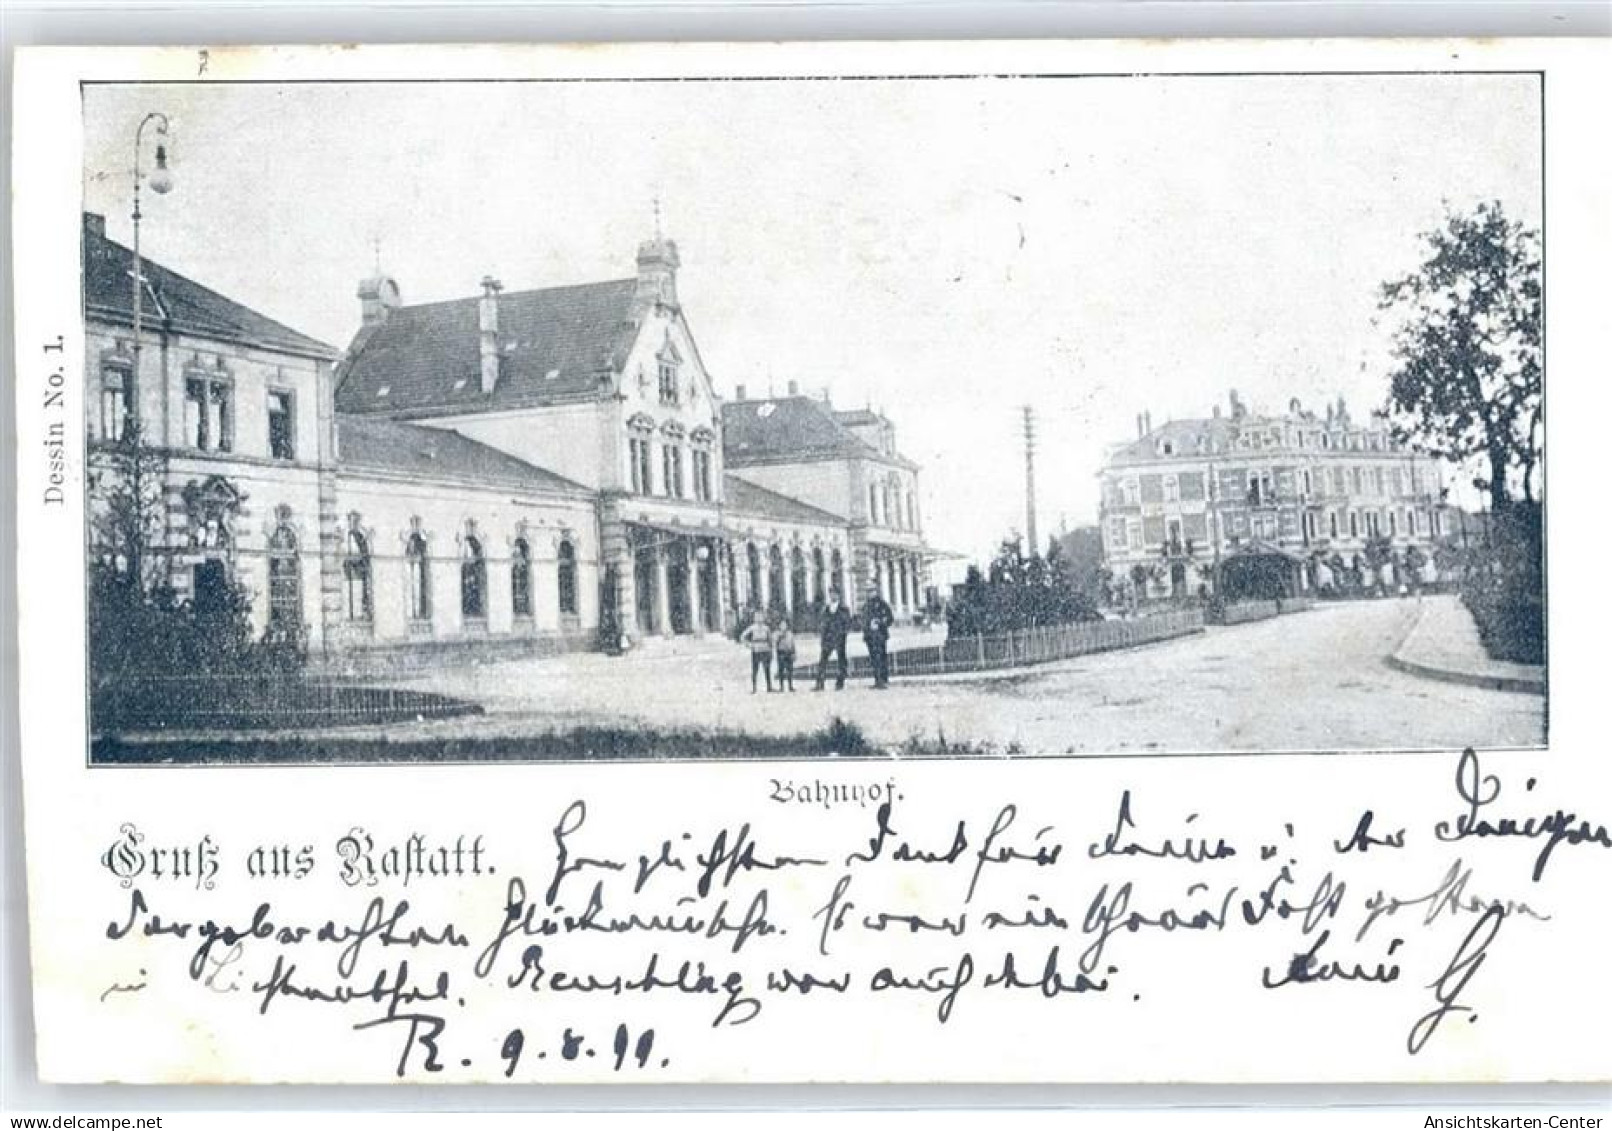 Dessin No. 1.
Bahnhof.
Gruß aus Rastatt.
Herzlichsten Dank für Deine u. der Deinigen
dargebrachten Glückwünsche. Es war ein Fest gestern
in Lichtenthal. war auch dabei. Dein G.
R. 9.8.99.
delcampe.net
Ansichtskarten-Center